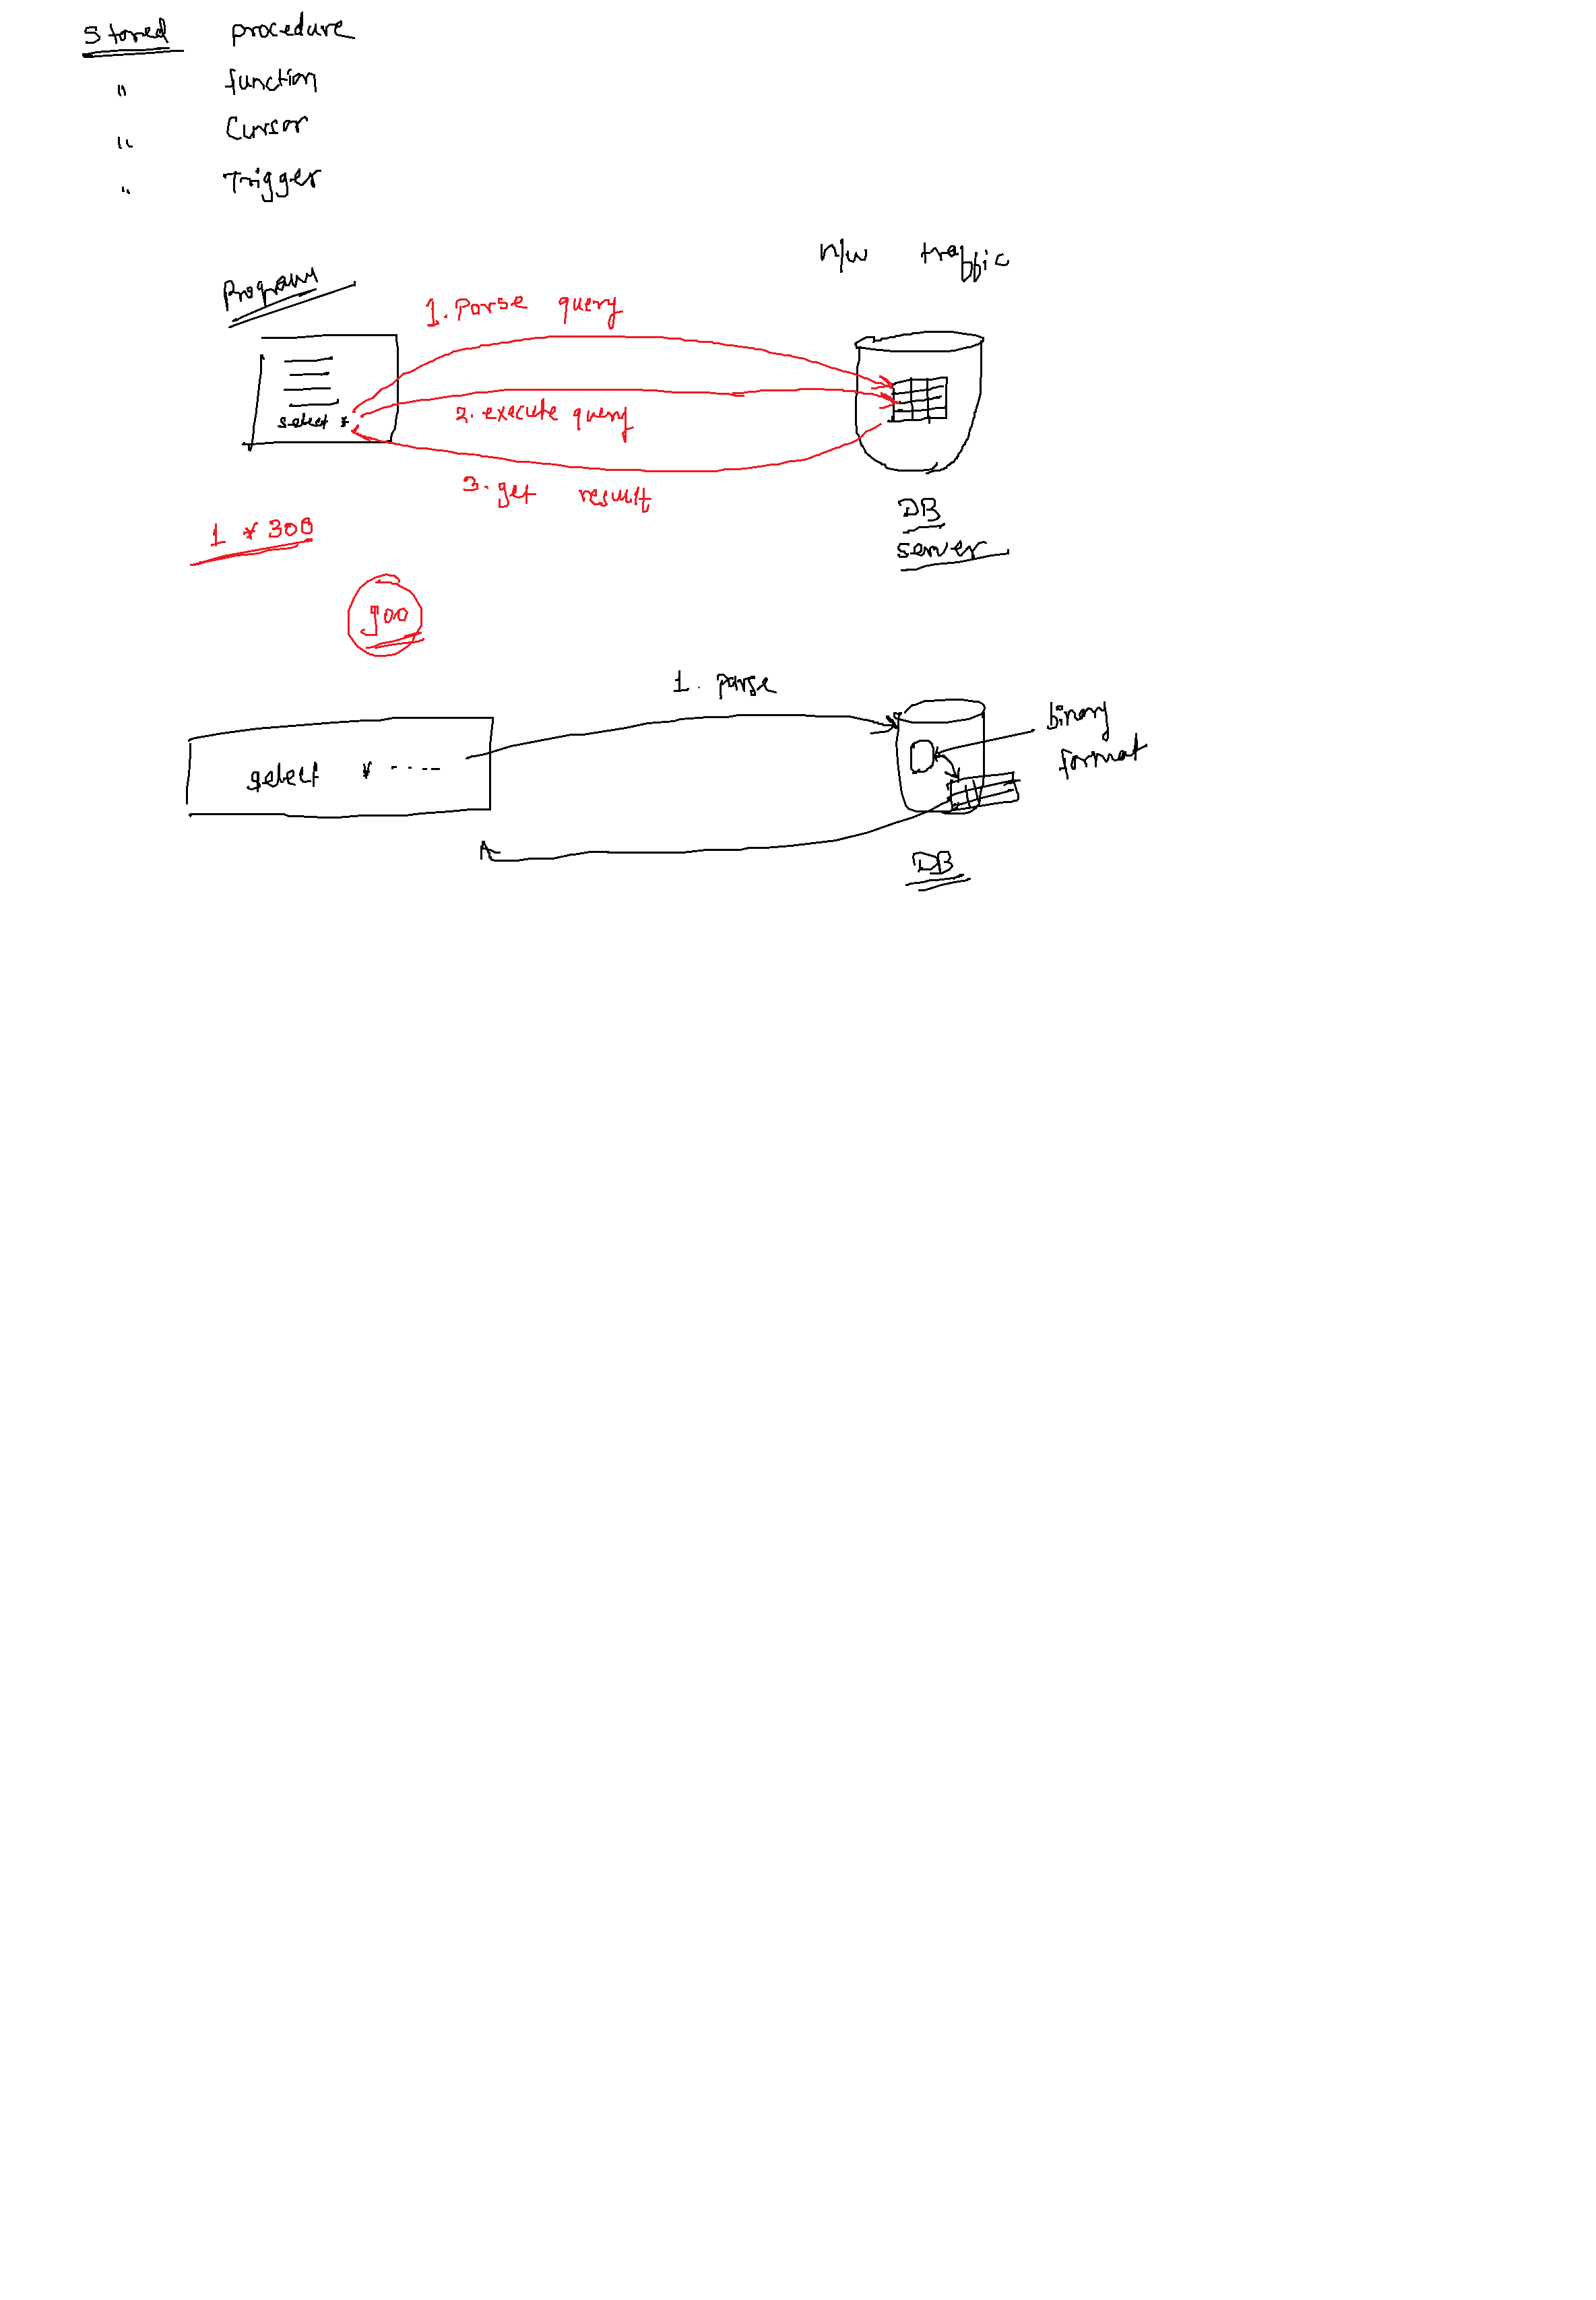 Stored procedure
" function
" Cursor
" Trigger
n/w traffic
Program
1. Parse query
select *
2. execute query
3. get result
DB
server
1 * 300
900
1. parse
binary
format
select * ....
DB